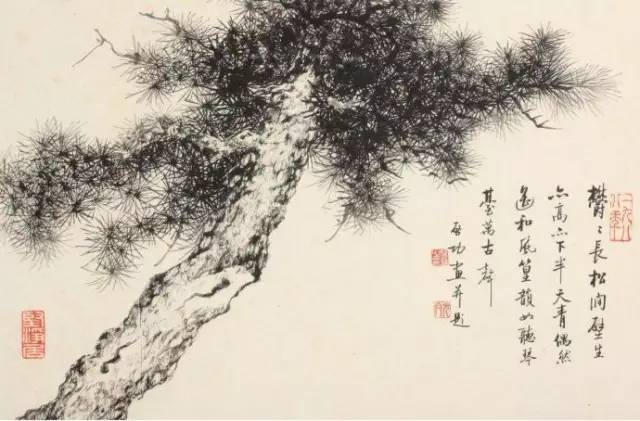 欝〻長松向壁生
亦高亦下半天青偶然
遙和風篁韻如聽琴
臺萬古聲
启功畫并題